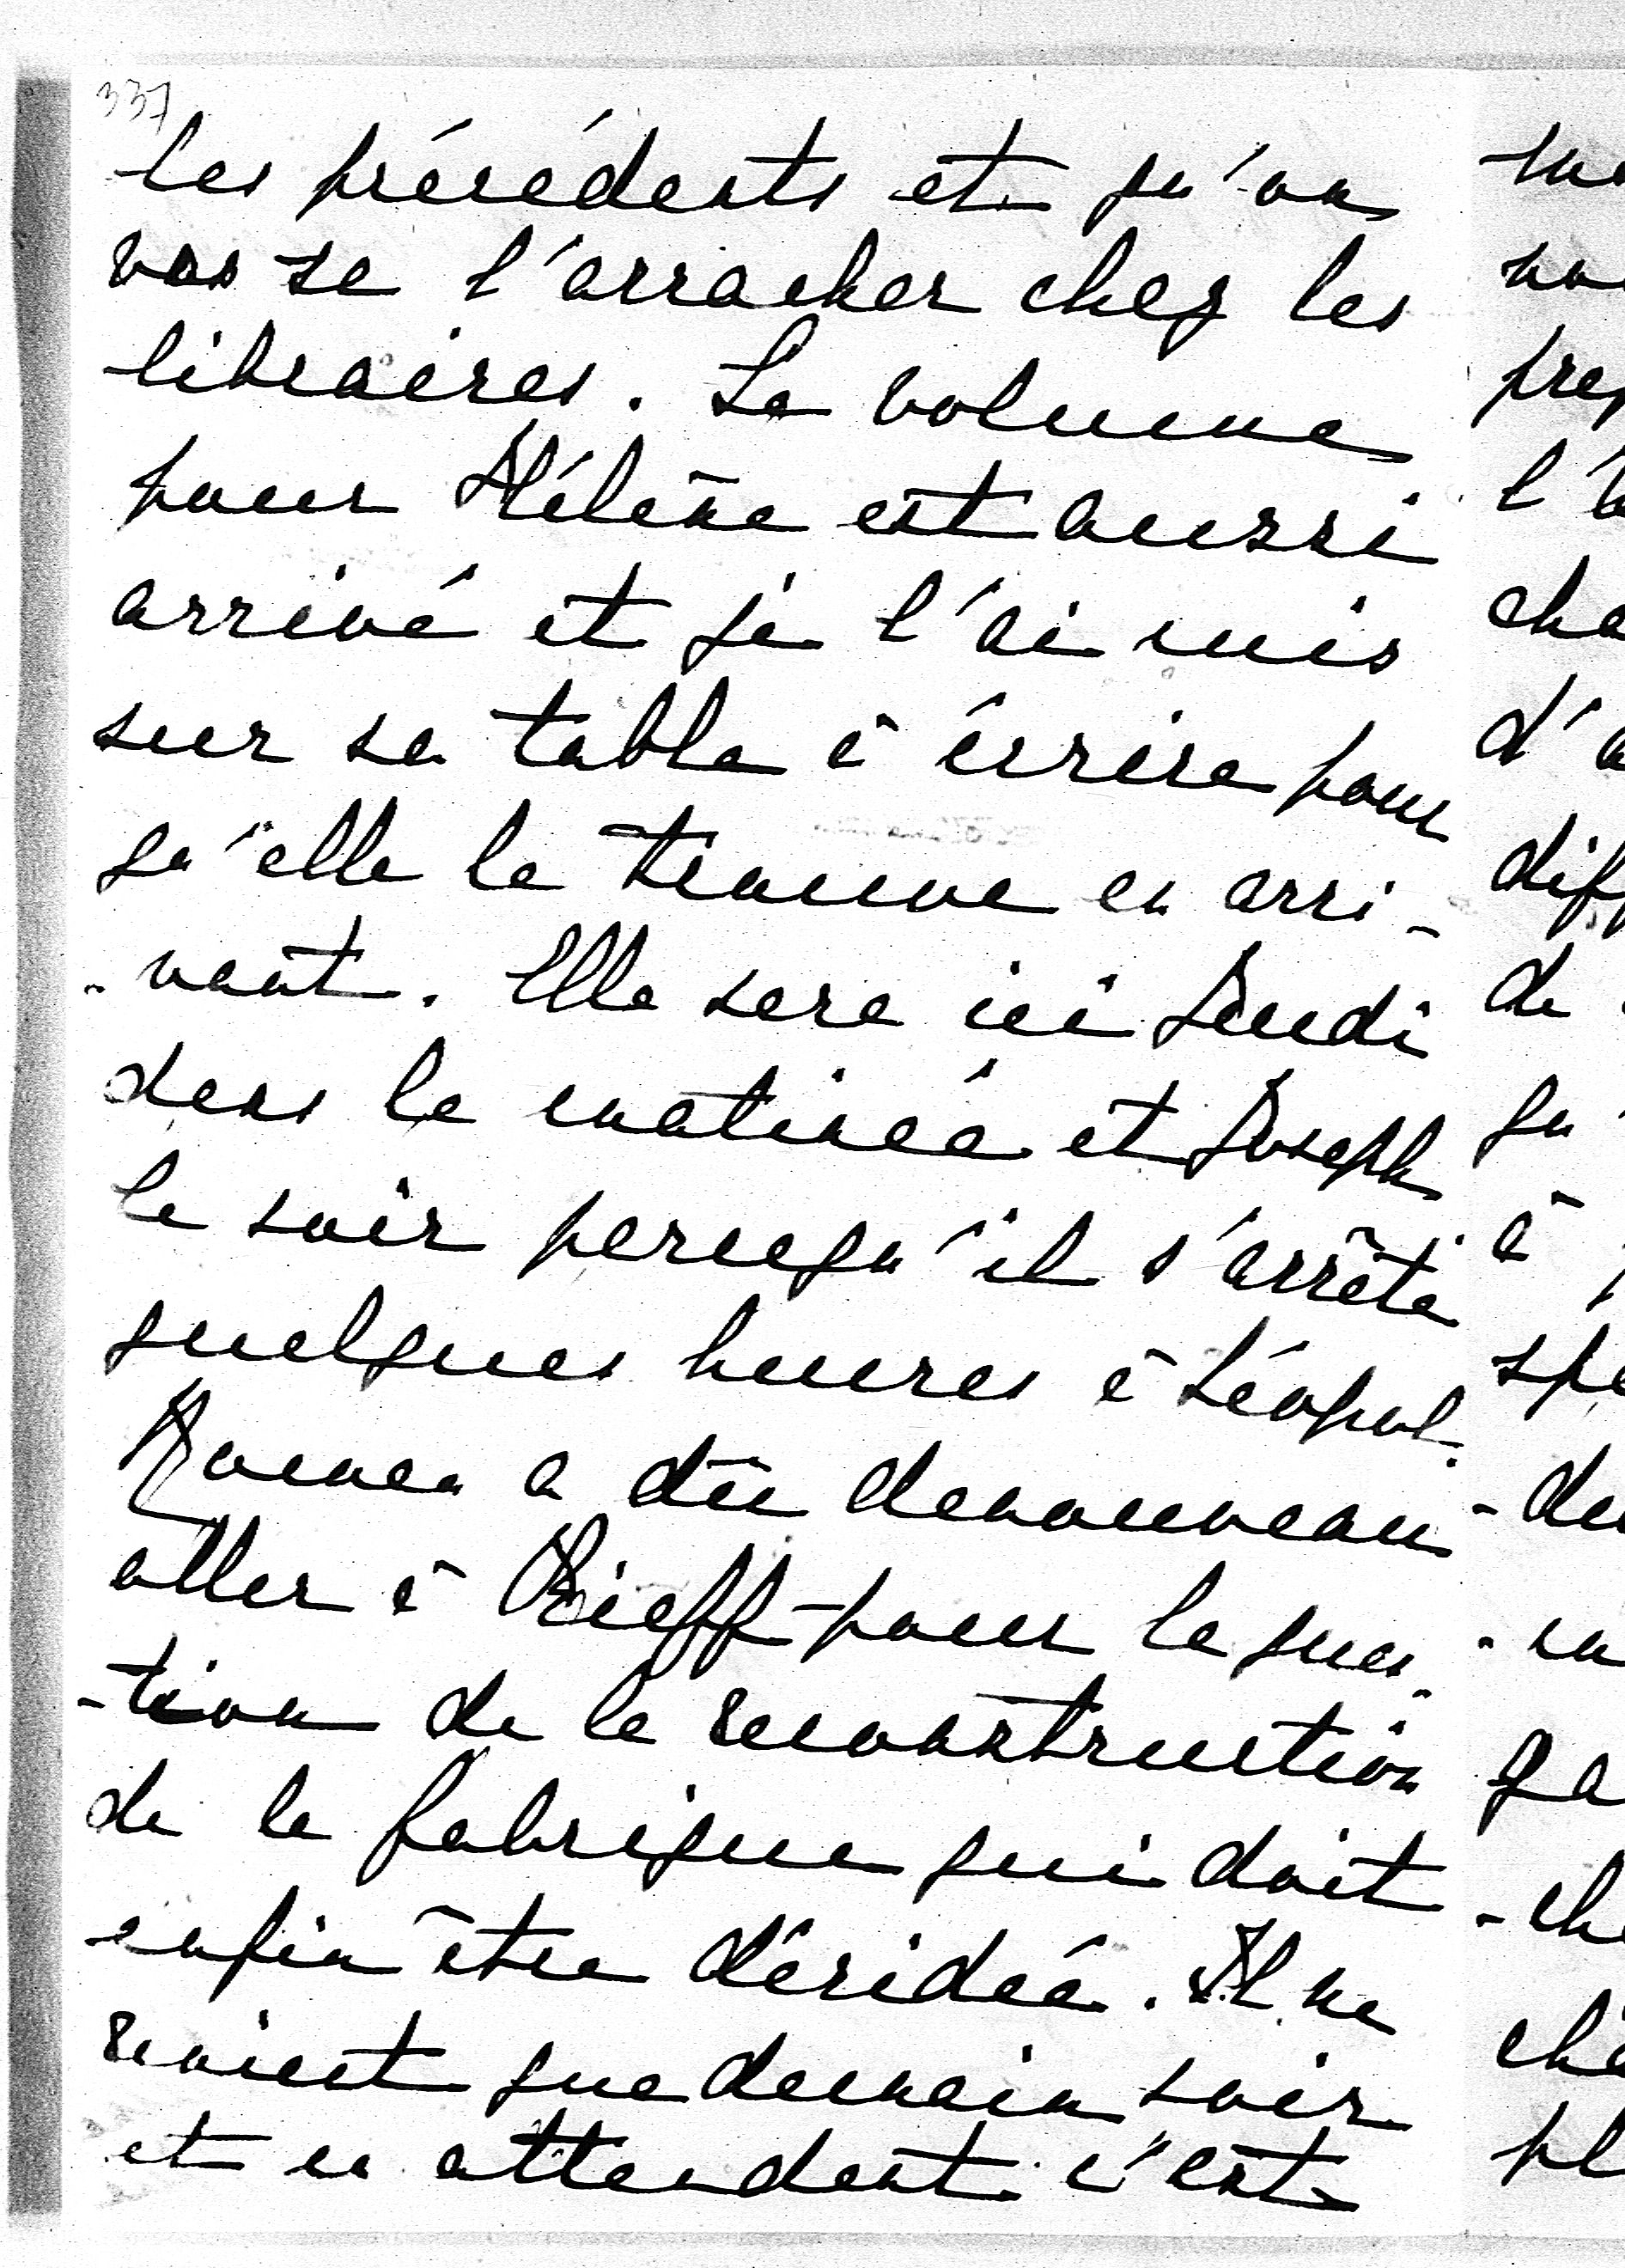 337
les précédents et qu'on
va se l'arracher chez les
libraires. Le volume
pour Hélène est aussi
arrivé et je l'ai mis
sur sa table à écrire pour
qu'elle le trouve en arri-
-vant. Elle sera ici Lundi
dans la matinée et Joseph
le soir parcequ'il s'arrête
quelques heures à Léopol.
a dû denouveau
aller à Kieff pour la ques-
-tion de la reconstruction
de la fabrique qui doit
enfin être décidée. Il ne
revient que demain soir
et en attendant c'est